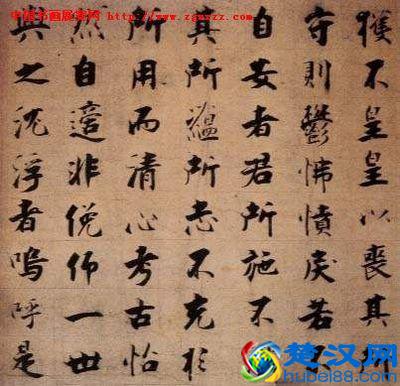 獲不皇皇以喪其所
守則鬱怫憤戾若不
自安者君所施不
其所蘊所志不充於
所用而清心考古怡
然自適非俛仰一世
與之沉浮者嗚呼是
楚汉网
hubei88.com